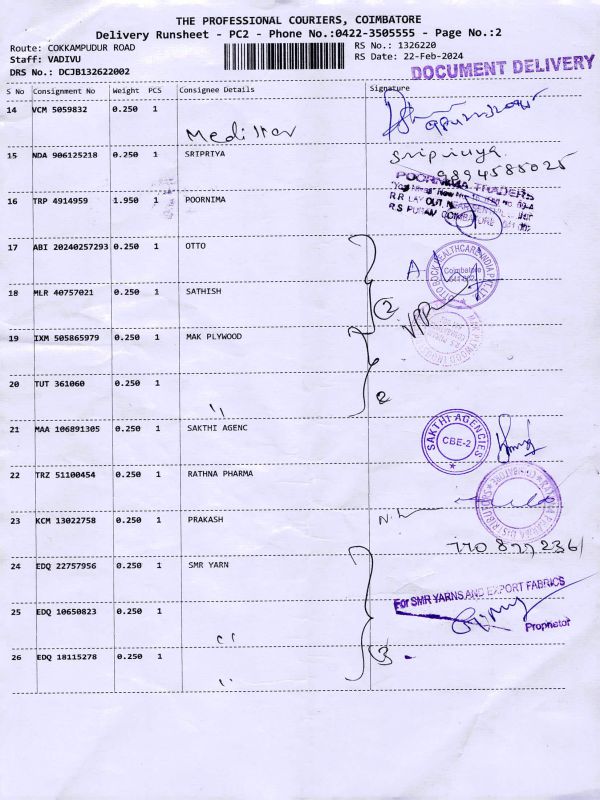 THE PROFESSIONAL COURIERS, COIMBATORE
Delivery Runsheet - PC2 - Phone No.:0422-3505555 - Page No.:2
Route: COKKAMPUDUR ROAD
RS No.: 1326220
Staff: VADIVU
RS Date: 22-Feb-2024
DRS No.: DCJB132622002
DOCUMENT DELIVERY
S No Consignment No Weight PCS Consignee Details Signature
14 VCM 5059832 0.250 1
Medistar
15 NDA 906125218 0.250 1 SRIPRIYA
Sripriya.
9894585025
16 TRP 4914959 1.950 1 POORNIMA
POORNIMA TRADERS
17 ABI 20240257293 0.250 1 OTTO
Coimbatore
18 MLR 40757021 0.250 1 SATHISH
2
19 IXM 505865979 0.250 1 MAK PLYWOOD
20 TUT 361060 0.250 1
"
2
21 MAA 106891305 0.250 1 SAKTHI AGENC
SAKTHI AGENCIES
CBE-2
22 TRZ 51100454 0.250 1 RATHNA PHARMA
23 KCM 13022758 0.250 1 PRAKASH
24 EDQ 22757956 0.250 1 SMR YARN
For SMR YARNS AND EXPORT FABRICS
25 EDQ 10650823 0.250 1
"
Proprietor
26 EDQ 18115278 0.250 1
"
3